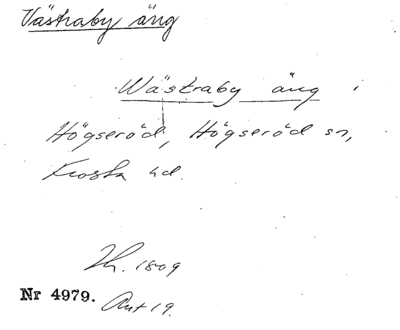 Västraby äng
Wästraby äng i
Högseröd, Högseröd sn,
Frosta hd.
1809
Nr 4979. Akt 19.